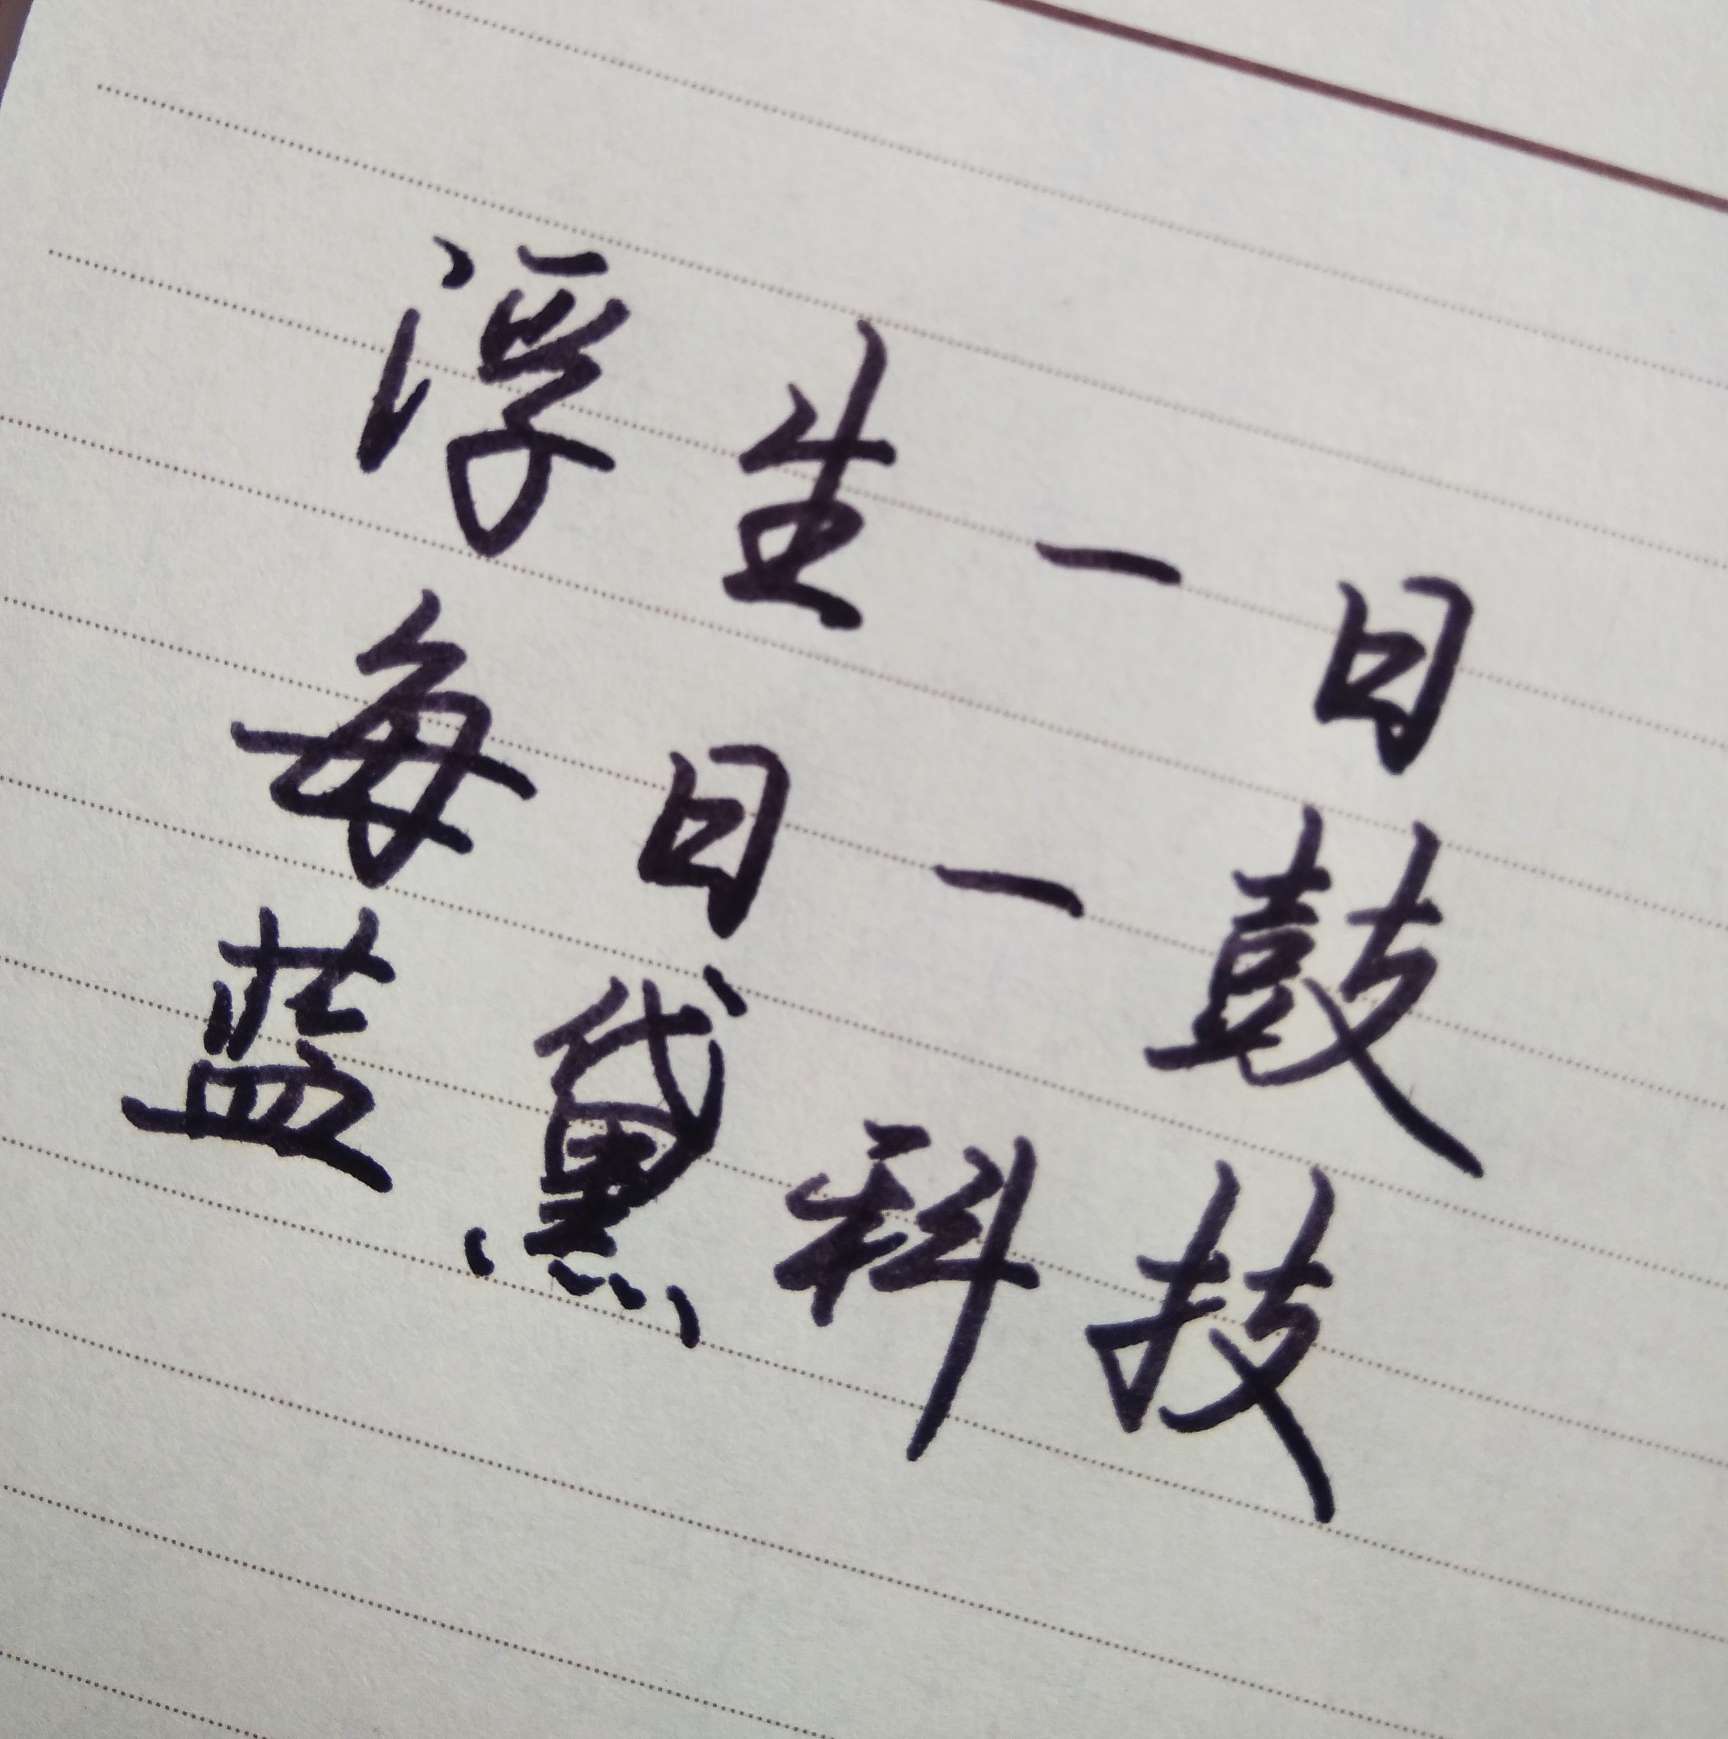 浮生一日
每日一鼓
蓝黛科技